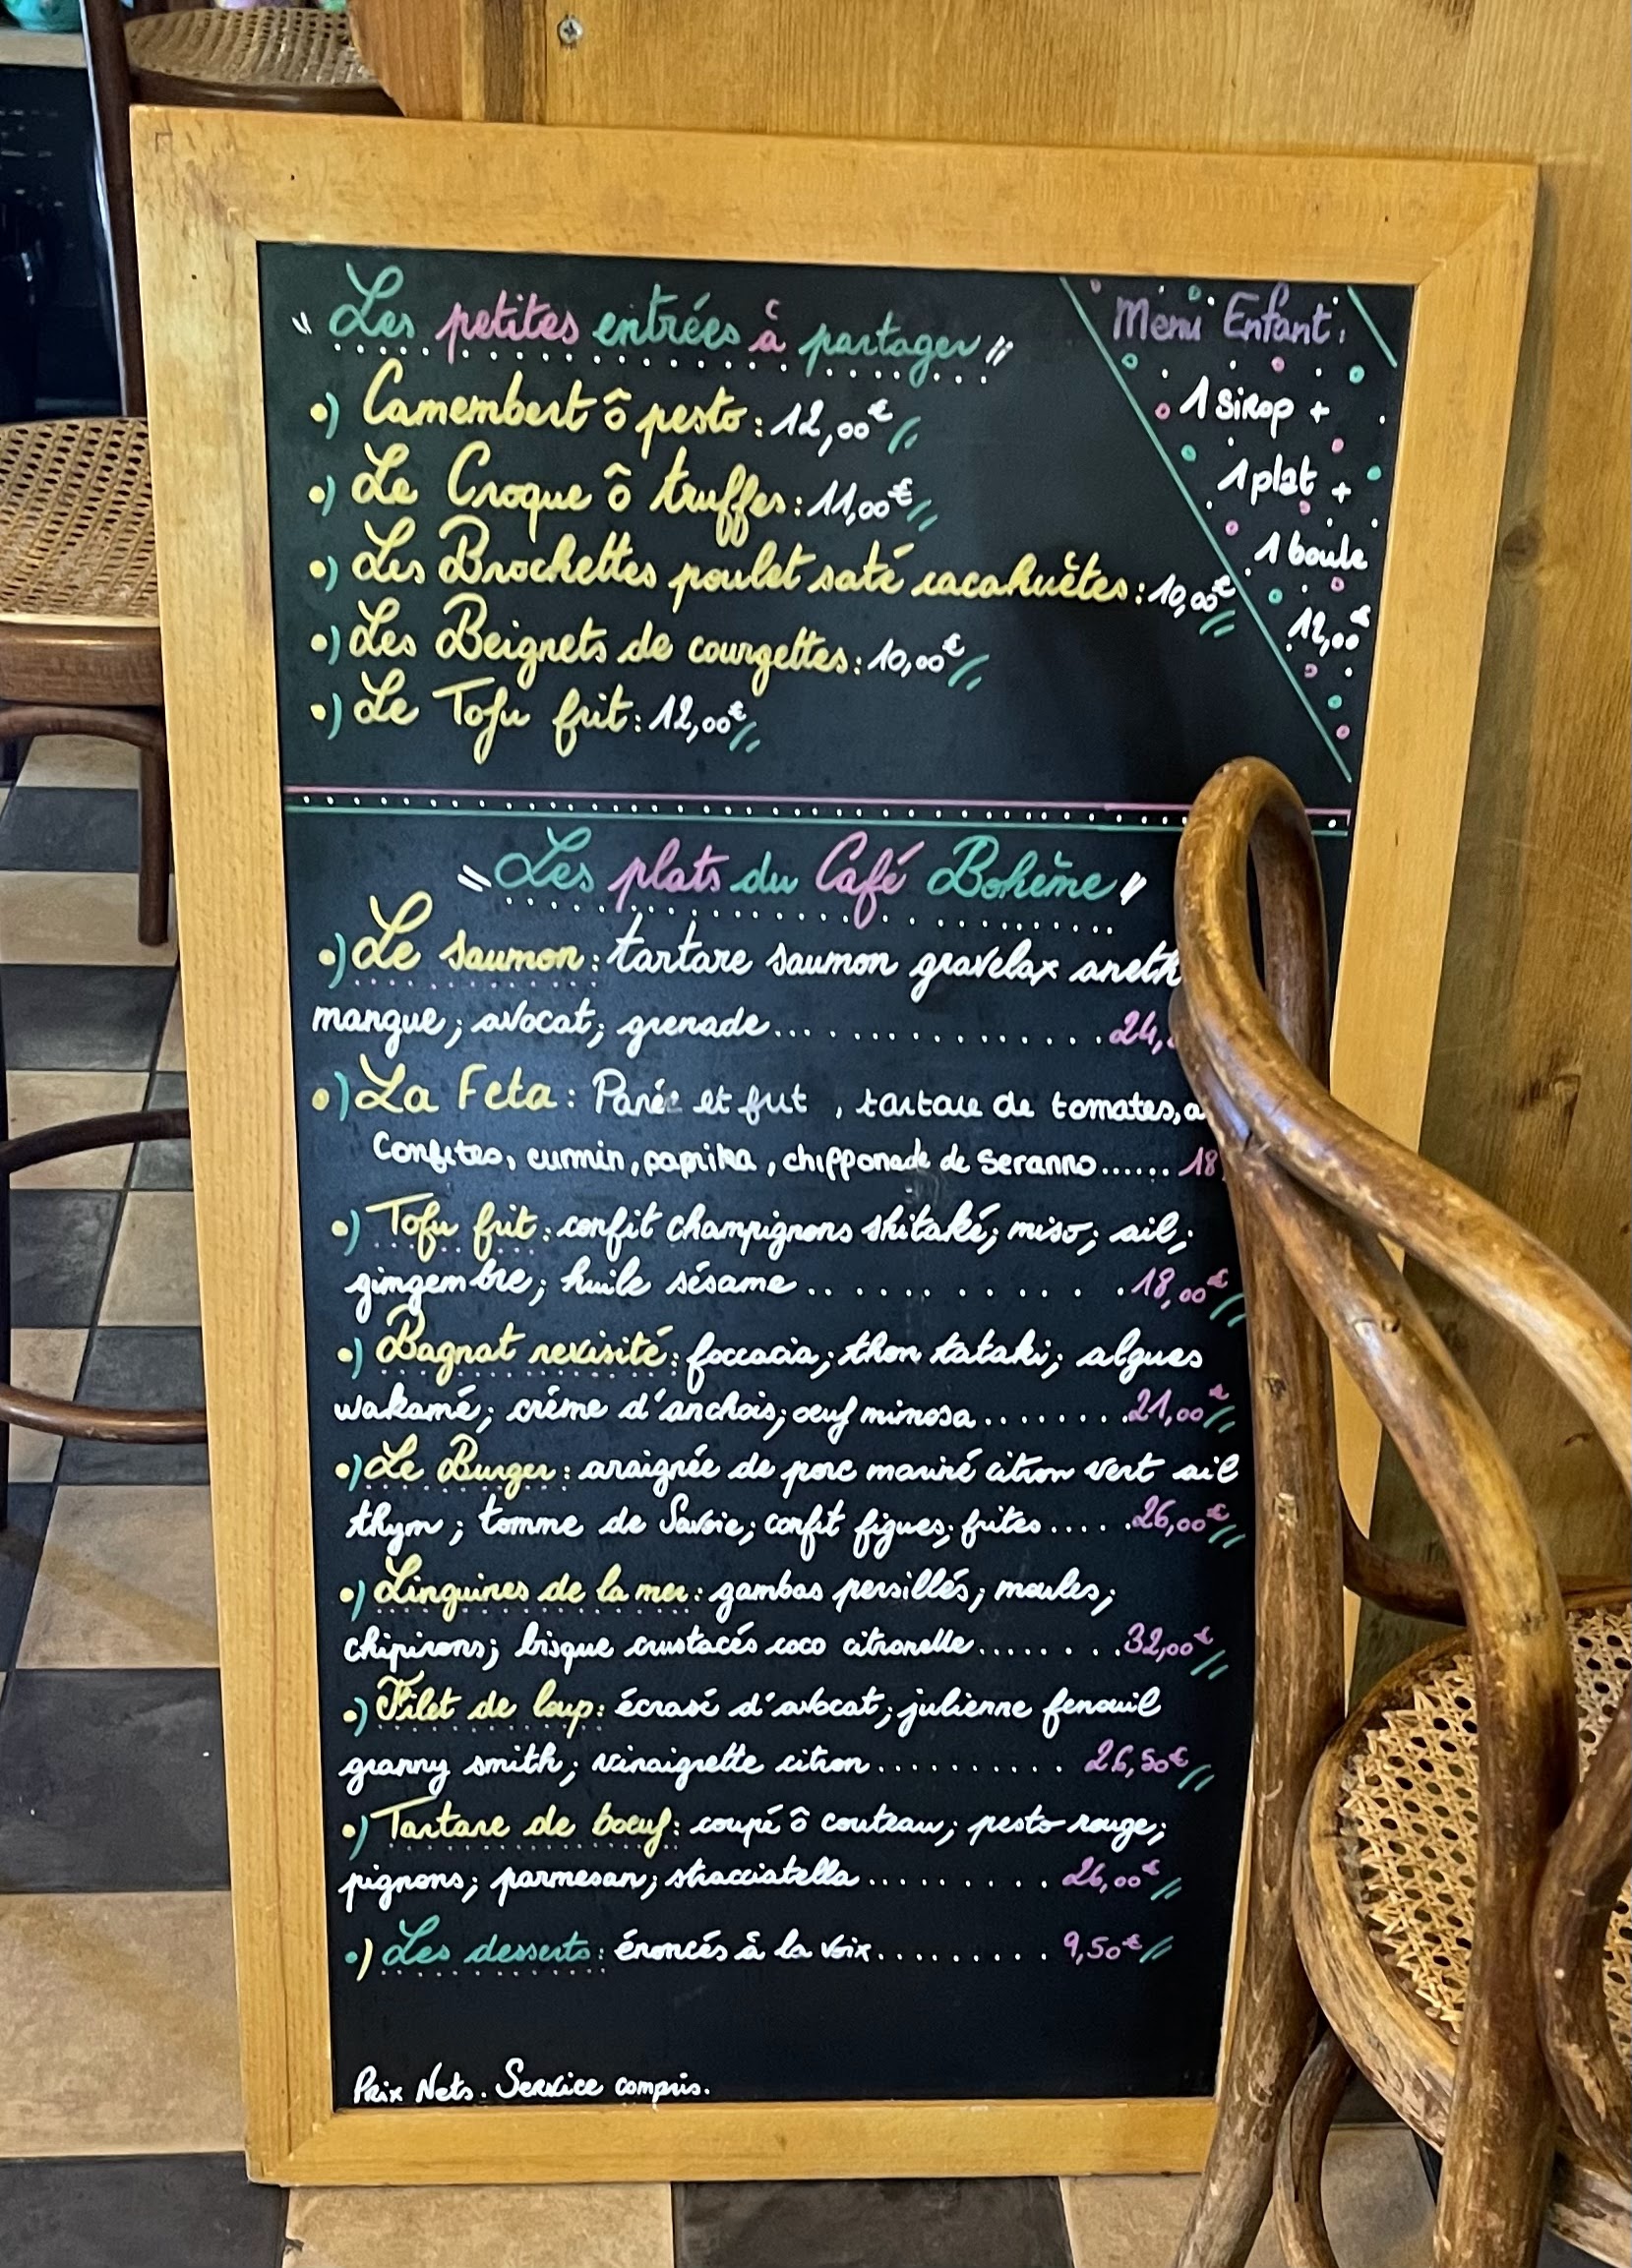 " Les petites entrées à partager "
•) Camembert ô pesto : 12,00€
•) Le Croque ô truffes : 11,00€
•) Les Brochettes poulet saté cacahuètes : 10,00€
•) Les Beignets de courgettes : 10,00€
•) Le Tofu frit : 12,00€
Menu Enfant :
1 sirop +
1 plat +
1 boule
12,00€
" Les plats du Café Bohème "
•) Le saumon : tartare saumon gravelax aneth
mangue ; avocat ; grenade... 24,
•) La Feta : Panée et frit , tartare de tomates,
Confites, curmin, paprika , chipponade de Seranno...... 18
•) Tofu frit : confit champignons shitaké ; miso ; ail ;
gimgembre ; huile sésame ............ 18,00€
•) Bagnat revisité : foccacia ; thon tataki ; algues
wakamé ; crème d'anchois ; œuf mimosa ........ 21,00€
•) Le Burger : araignée de porc mariné citron vert ail
thym ; tomme de Savoie ; confit figues ; frites ..... 26,00€
•) Linguines de la mer : gambas persillés ; moules ;
chipirons ; bisque crustacés coco citronelle ........ 32,00€
•) Filet de loup : écrasé d'avocat ; julienne fenouil
granny smith ; vinaigrette citron .......... 26,50€
•) Tartare de boeuf : coupé ô couteau ; pesto rouge ;
pignons ; parmesan ; stracciatella ......... 26,00€
•) Les desserts : énoncés à la voix ......... 9,50€
Prix Nets. Service compris.